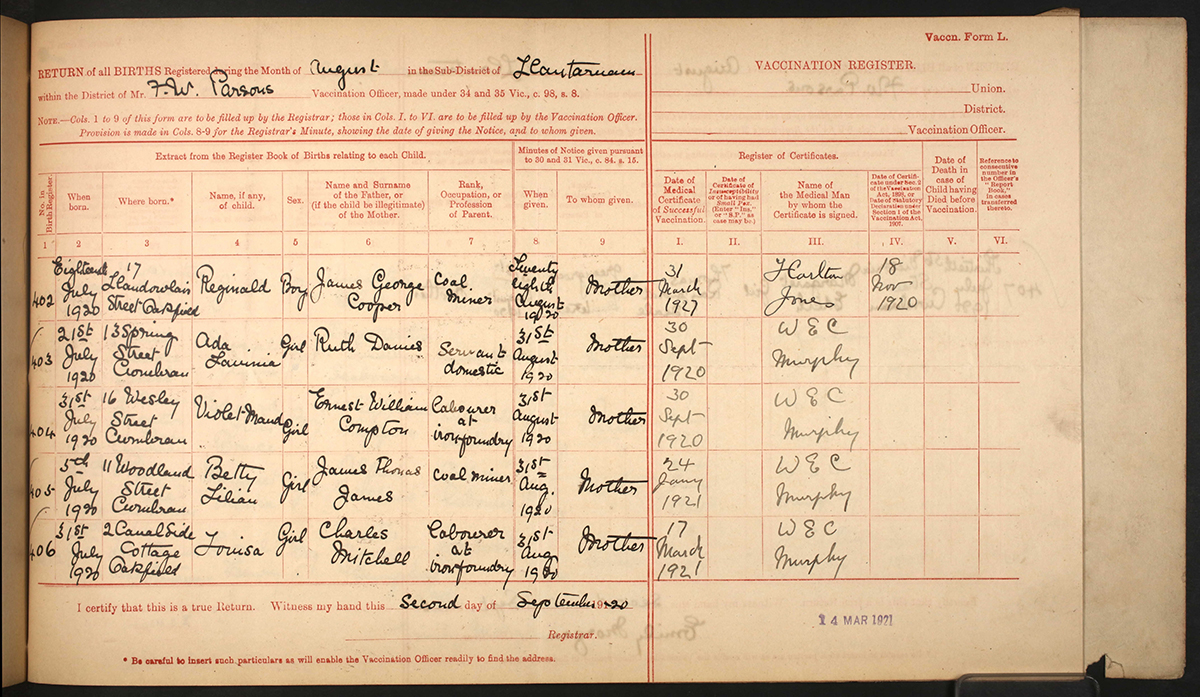 Vaccn. Form L.
RETURN of all BIRTHS Registered during the Month of August in the Sub-District of Llantarnam
within the District of Mr. F. W. Parsons Vaccination Officer, made under 34 and 35 Vic., c. 98, s. 8.
NOTE.—Cols. 1 to 9 of this form are to be filled up by the Registrar; those in Cols. I. to VI. are to be filled up by the Vaccination Officer.
Provision is made in Cols. 8-9 for the Registrar's Minute, showing the date of giving the Notice, and to whom given.
VACCINATION REGISTER.
Union.
District.
Vaccination Officer.
Extract from the Register Book of Births relating to each Child.
Minutes of Notice given pursuant
to 30 and 31 Vic., c. 84. s. 15.
Register of Certificates.
No. in
Birth Register.
When
born.
Where born.*
Name, if any,
of child.
Sex.
Name and Surname
of the Father, or
(if the child be illegitimate)
of the Mother.
Rank,
Occupation, or
Profession
of Parent.
When
given.
To whom given.
Date of
Medical
Certificate
of Successful
Vaccination.
Date of
Certificate of
Insusceptibility
or of having had
Small Pox.
(Enter "Ins."
or "S.P." as
case may be.)
Name of
the Medical Man
by whom the
Certificate is signed.
Date of Certifi-
cate under Sec. 2
of the Vaccination
Act, 1898, or
Date of statutory
Declaration under
Section 1 of the
Vaccination Act,
1907.
Date of
Death in
case of
Child having
Died before
Vaccination.
Reference to
consecutive
number in
the Officer's
"Report
Book,"
in cases
transferred
thereto.
1 2 3 4 5 6 7 8 9 I. II. III. IV. V. VI.
402
Eighteenth
July
1920
17
Llandowlais
Street Oakfield
Reginald
Boy
James George
Cooper
Coal
Miner
Twenty
eighth
August
1920
Mother
31
March
1927
Harlton
Jones
18
Nov
1920
403
21st
July
1920
13 Spring
Street
Cwmbran
Ada
Lavinia
Girl
Ruth Davies
Servant
domestic
31st
August
1920
Mother
30
Sept
1920
W E C
Murphy
404
31st
July
1920
16 Wesley
Street
Cwmbran
Violet Maud
Girl
Ernest William
Compton
Labourer
at
ironfoundry
31st
August
1920
Mother
30
Sept
1920
W E C
Murphy
405
5th
July
1920
11 Woodland
Street
Cwmbran
Betty
Lilian
Girl
James Thomas
James
Coal miner
31st
Aug.
1920
Mother
24
Jany
1921
W E C
Murphy
406
31st
July
1920
2 Canal Side
Cottage
Oakfield
Louisa
Girl
Charles
Mitchell
Labourer
at
ironfoundry
31st
Aug
1920
Mother
17
March
1921
W E C
Murphy
I certify that this is a true Return. Witness my hand this Second day of September 1920
Registrar.
14 MAR 1921
* Be careful to insert such particulars as will enable the Vaccination Officer readily to find the address.